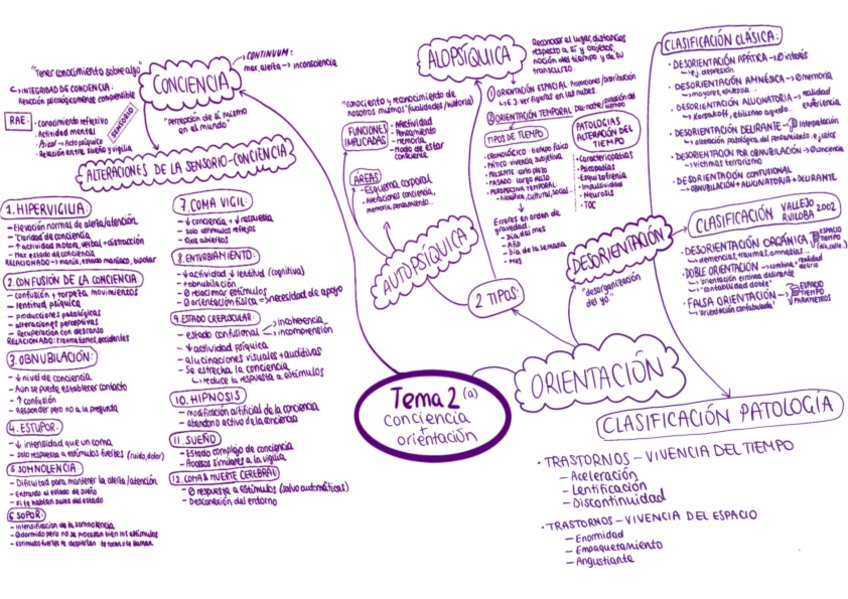 Tema 2 (a)
conciencia
+
orientación
CONCIENCIA
"Tener conocimiento sobre algo"
CONTINUUM:
max. alerta → inconsciencia
INTEGRIDAD DE CONCIENCIA:
Reacción psicológicamente comprensible
RAE:
- conocimiento reflexivo
- Actividad mental
- Psicol → Acto psíquico
- Relación entre sueño y vigilia
SENSORIO
"percepción de sí mismo
en el mundo"
ALTERACIONES DE LA SENSORIO-CONCIENCIA
1. HIPERVIGILIA:
- Elevación normal de alerta/atención
- "Claridad" de conciencia
- ↑ actividad motora, verbal + distracción
- Max. estado de conciencia
RELACIONADO → manía, estado maníaco, bipolar
2. CONFUSIÓN DE LA CONCIENCIA:
- confusión + torpeza, movimientos
- lentitud psíquica
- producciones patológicas
- alteraciones perceptivas
- Recuperación con descanso
RELACIONADO: traumatismos, accidentes
3. OBNUBILACIÓN:
- ↓ nivel de conciencia
- Aun se puede establecer contacto
- ↑ confusión
- Responder pero no a la pregunta
4. ESTUPOR:
- ↓ intensidad que un coma
- solo respuesta a estímulos fuertes (ruido, dolor)
5. SOMNOLENCIA:
- Dificultad para mantener la alerta/atención
- Entrando al estado de sueño
- si te hablan sales del estado
6. SOPOR:
- Intensificación de la somnolencia
- Estímulos fuertes te despiertan
7. COMA VIGIL:
- ↓ conciencia + ↓ respuesta
- solo estímulos reflejos
- Ojos abiertos
8. ENTURBIAMIENTO:
- ↓ actividad ↓ lentitud (cognitiva)
- +obnubilación
- Ø relacionar estímulos
- Ø orientación física → necesidad de apoyo
9. ESTADO CREPUSCULAR:
- estado confusional → incoherencia
→ incomprensión
- ↓ actividad psíquica
- alucinaciones visuales + auditivas
- Se estrecha la conciencia
↳ reduce la respuesta a estímulos
10. HIPNOSIS
- modificación artificial de la conciencia
- abandono activo de la conciencia
11. SUEÑO
- Estado complejo de conciencia
- Accesos similares a la vigilia
12. COMA & MUERTE CEREBRAL:
- Ø respuesta a estímulos (salvo automáticas)
- Desconexión del entorno
ORIENTACIÓN
2 TIPOS:
AUTOPSÍQUICA
"conciencia y reconocimiento de
nosotros mismos" (cualidades/historia)
FUNCIONES
IMPLICADAS
- Afectividad
- Pensamiento
- memoria
- modo de estar
consciente
ÁREAS
- Esquema corporal
- Alteraciones conciencia,
memoria, pensamiento...
ALOPSÍQUICA
Reconocer el lugar, distancias
respecto a sí y objetos,
noción del tiempo y de su
transcurso.
① ORIENTACIÓN ESPACIAL
↳ EJ. ver figuras en las nubes.
② ORIENTACIÓN TEMPORAL
TIPOS DE TIEMPO
- CRONOLÓGICO: tiempo físico
- PÁTICO: vivencia subjetiva
- PRESENTE: corto plazo
- PASADO: largo plazo
- PERSPECTIVA TEMPORAL
↳ Filosófica, cultural, social...
Errores en orden de
gravedad:
- Día del mes
- Año
- Día de la semana
- Mes
PATOLOGÍAS
ALTERACIÓN DEL
TIEMPO
- Caracteriopatías
- Psicopatías
- Esquizofrenia
- Impulsividad
- Neurosis
- TOC
DESORIENTACIÓN
"desorganización
del yo"
CLASIFICACIÓN CLÁSICA:
· DESORIENTACIÓN APÁTICA → Ø interés
↳ ej. depresión
· DESORIENTACIÓN AMNÉSICA → Ø memoria
↳ mayores, epilepsia...
· DESORIENTACIÓN ALUCINATORIA → realidad
experiencia
· DESORIENTACIÓN DELIRANTE → interpretación
↳ alteración patológica del pensamiento
· DESORIENTACIÓN POR OBNUBILACIÓN → Ø conciencia
↳ víctimas terrorismo
· DESORIENTACIÓN CONFUSIONAL
↳ OBNUBILACIÓN + ALUCINATORIA + DELIRANTE
CLASIFICACIÓN VALLEJO
RUILOBA 2002
· DESORIENTACIÓN ORGÁNICA: ESPACIO
TIEMPO
↳ demencias, traumas, amnesias...
· DOBLE ORIENTACIÓN → combina realidad
delirio
↳ "orientación errónea delirante"
↳ "contabilidad doble"
· FALSA ORIENTACIÓN → ESPACIO
TIEMPO
PARÁMETROS
↳ "orientación confabulada"
CLASIFICACIÓN PATOLOGÍA
· TRASTORNOS - VIVENCIA DEL TIEMPO
- Aceleración
- Lentificación
- Discontinuidad
· TRASTORNOS - VIVENCIA DEL ESPACIO
- Enormidad
- Empaquetamiento
- Angustiante